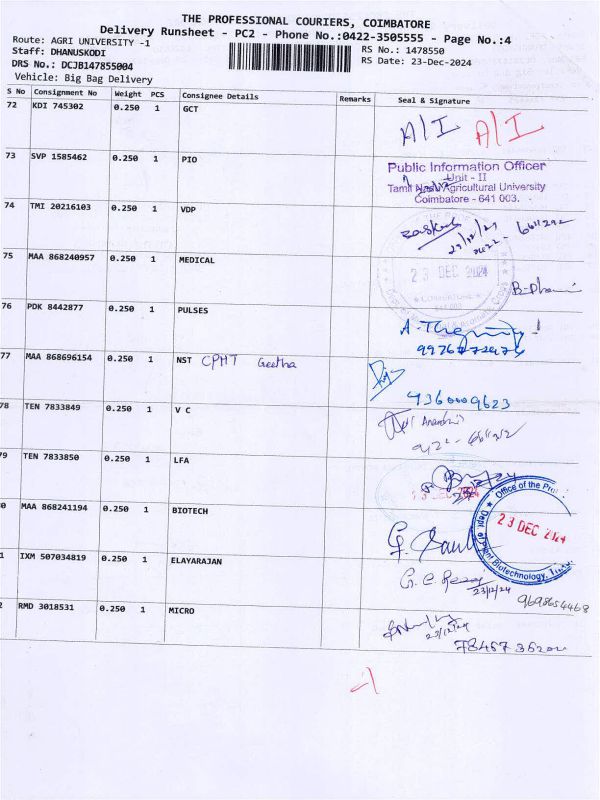 THE PROFESSIONAL COURIERS, COIMBATORE
Delivery Runsheet - PC2 - Phone No.:0422-3505555 - Page No.:4
Route: AGRI UNIVERSITY -1
RS No.: 1478550
Staff: DHANUSKODI
RS Date: 23-Dec-2024
DRS No.: DCJB147855004
Vehicle: Big Bag Delivery
S No Consignment No Weight PCS Consignee Details Remarks Seal & Signature
72 KDI 745302 0.250 1 GCT
A/I A/I
73 SVP 1585462 0.250 1 PIO
Public Information Officer
Unit - II
Tamil Nadu Agricultural University
Coimbatore - 641 003.
74 TMI 20216103 0.250 1 VDP
75 MAA 868240957 0.250 1 MEDICAL
23 DEC 2024
COIMBATORE
76 PDK 8442877 0.250 1 PULSES
77 MAA 868696154 0.250 1 NST CPMT Geetha
9360009623
78 TEN 7833849 0.250 1 V C
79 TEN 7833850 0.250 1 LFA
Office of the
23 DEC 2024
Dept. of Plant Biotechnology,
0 MAA 868241194 0.250 1 BIOTECH
1 IXM 507034819 0.250 1 ELAYARAJAN
23/12/24
9698654468
2 RMD 3018531 0.250 1 MICRO
23/12/24